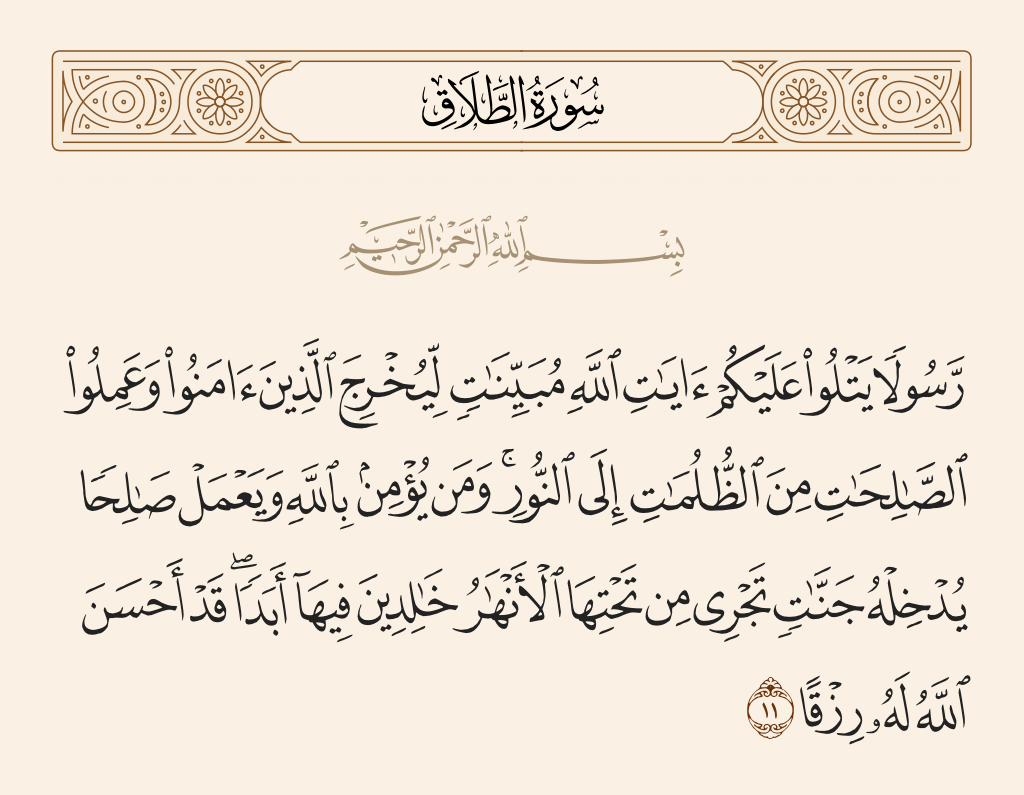 سُورَةُ الطَّلَاقِ
بِسْمِ ٱللَّهِ ٱلرَّحْمَٰنِ ٱلرَّحِيمِ
رَّسُولًا يَتْلُوا۟ عَلَيْكُمْ ءَايَٰتِ ٱللَّهِ مُبَيِّنَٰتٍ لِّيُخْرِجَ ٱلَّذِينَ ءَامَنُوا۟ وَعَمِلُوا۟
ٱلصَّٰلِحَٰتِ مِنَ ٱلظُّلُمَٰتِ إِلَى ٱلنُّورِ ۚ وَمَن يُؤْمِنۢ بِٱللَّهِ وَيَعْمَلْ صَٰلِحًا
يُدْخِلْهُ جَنَّٰتٍ تَجْرِى مِن تَحْتِهَا ٱلْأَنْهَٰرُ خَٰلِدِينَ فِيهَآ أَبَدًا ۖ قَدْ أَحْسَنَ
ٱللَّهُ لَهُۥ رِزْقًا ١١